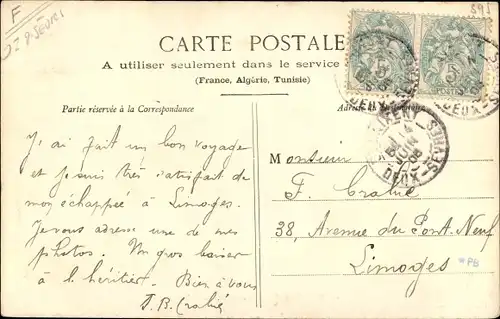 F
895
CARTE POSTALE
A utiliser seulement dans le service
(France, Algérie, Tunisie)
5 5
POSTES
Partie réservée à la Correspondance
DEUX-SÈVRES
14
JUIN
J'ai fait un bon voyage
et je suis très satisfait de
mon échappée à Limoges.
Je vous adresse une de mes
photos. Un gros baiser
à l'héritier. Bien à vous
Monsieur
F. Crabié
38, Avenue du Pont-Neuf
Limoges
*PB